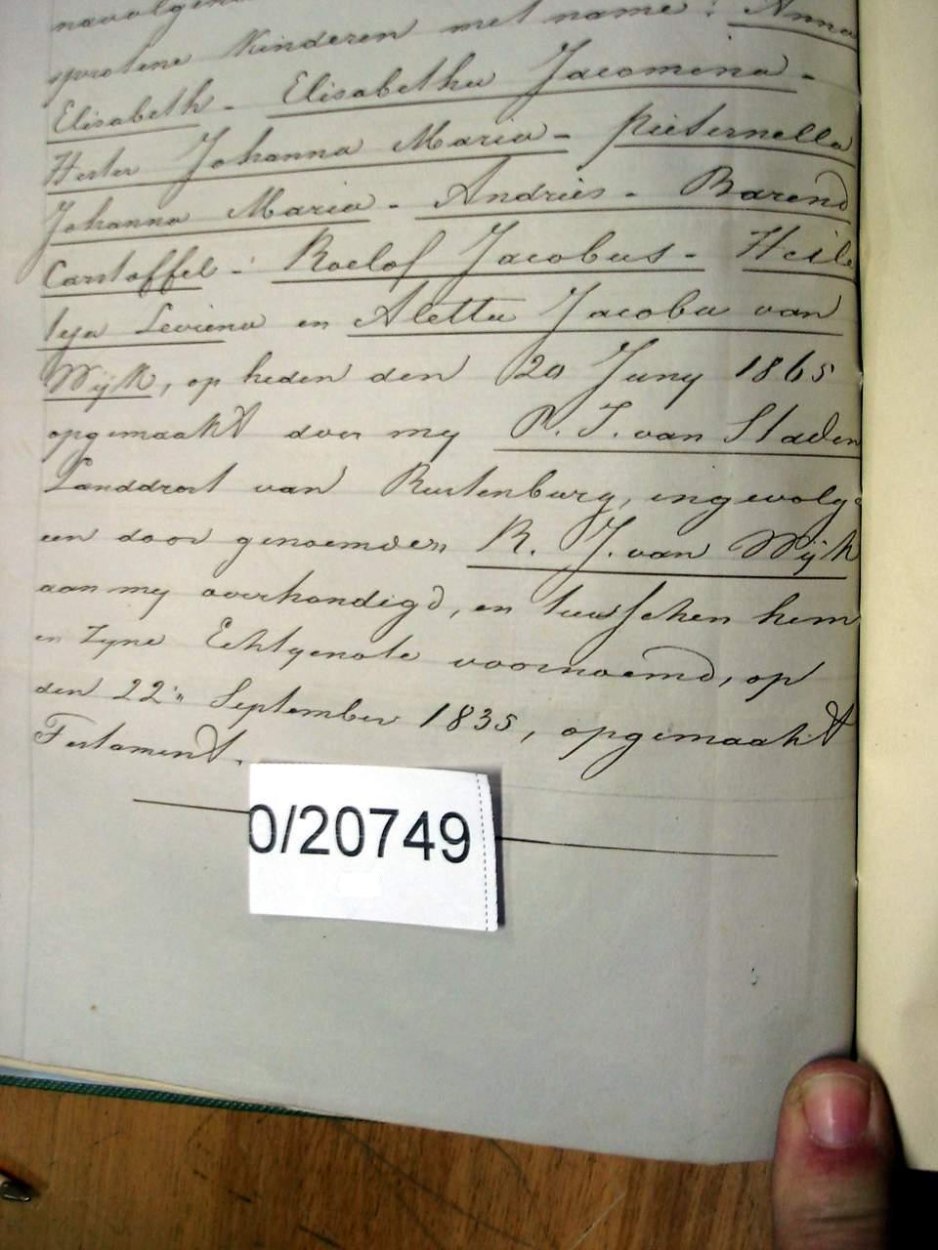 navolgen
sprotene Kinderen met name: Anna
Elisabeth - Elisabetha Jacomina -
Hester Johanna Maria - Pieternella
Johanna Maria - Andries - Barend
Carstoffel - Roelof Jacobus - Heil
tja Leviena en Aletta Jacoba van
Wÿk, op heden den 20 Juny 1865
opgemaakt door my P. J. van Staden
Landdrost van Rustenburg, ingevolge
een door genoemden R. J. van Wÿk
aan my overhandigd, en tusschen hem
en Zyne Echtgenote voornoemd, op
den 22n September 1835, opgemaakt
Testament.
0/20749